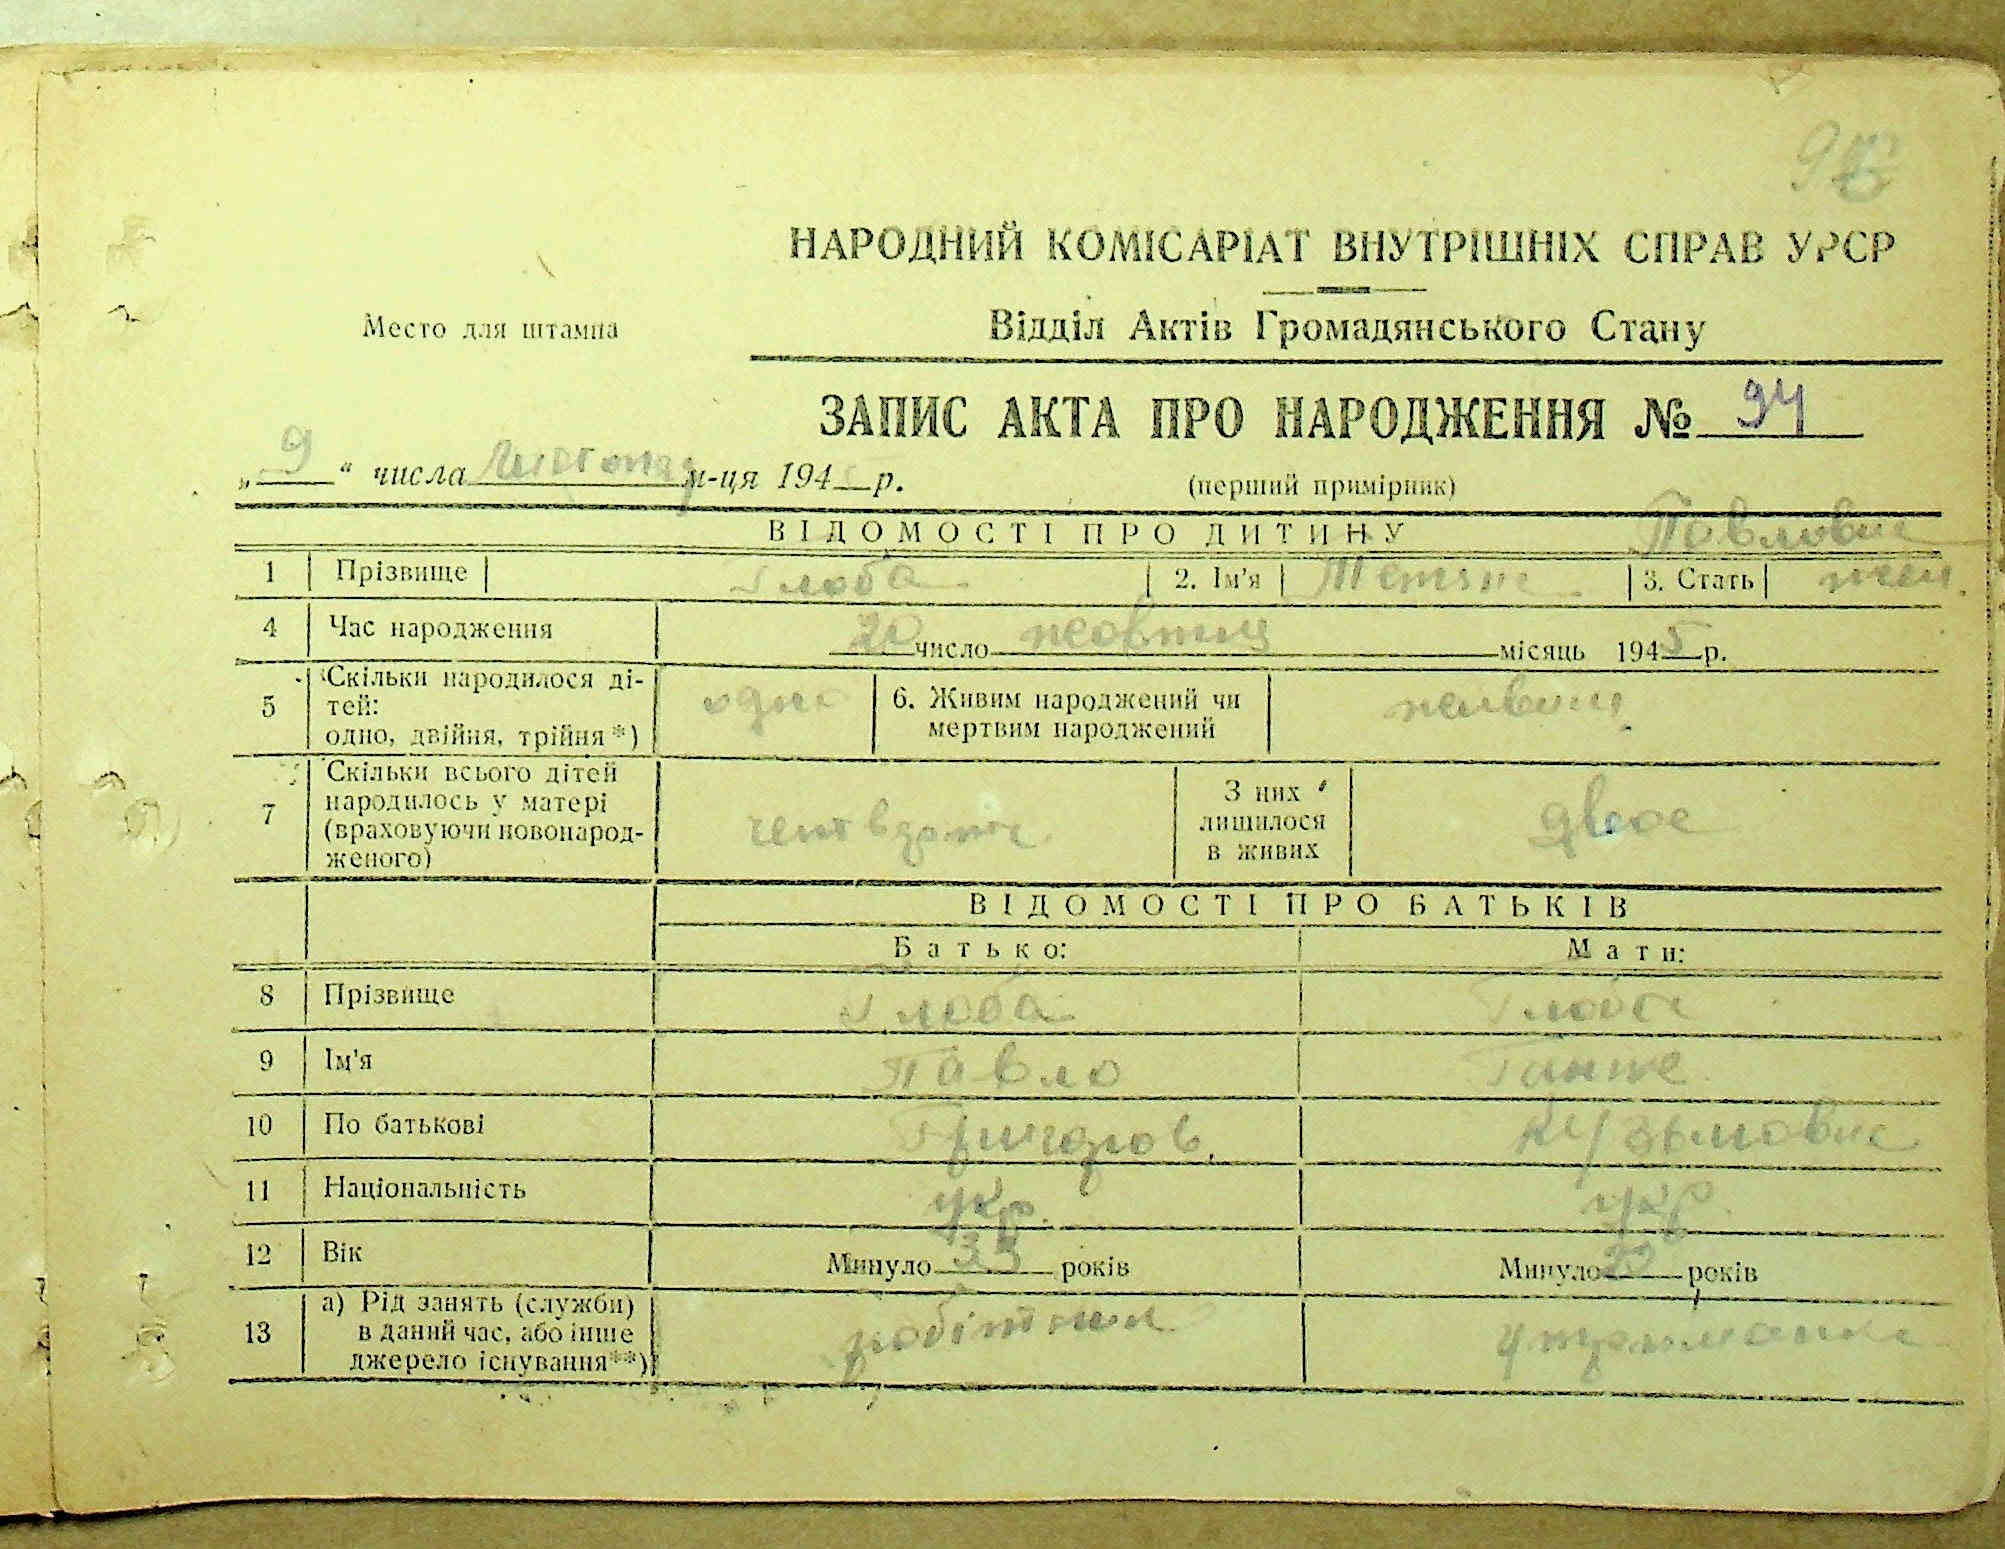 НАРОДНИЙ КОМІСАРІАТ ВНУТРІШНІХ СПРАВ УРСР
Место для штампа
Відділ Актів Громадянського Стану
ЗАПИС АКТА ПРО НАРОДЖЕННЯ № 94
„9“ числа листопад м-ця 194 р.
(перший примірник)
ВІДОМОСТІ ПРО ДИТИНУ
Павловна
1 Прізвище Глоба 2. Ім'я Тетяна 3. Стать жен.
4 Час народження 20 число жовтня місяць 1945 р.
5 Скільки народилося ді-
тей:
одно, двійня, трійня*) одна
6. Живим народжений чи
мертвим народжений живим
7 Скільки всього дітей
народилось у матері
(враховуючи новонарод-
женого)
З них
лишилося
в живих двоє
ВІДОМОСТІ ПРО БАТЬКІВ
Батько: Мати:
8 Прізвище Глоба Глоба
9 Ім'я Павло Ганна
10 По батькові Григоров. Кузьмовна
11 Національність укр. укр.
12 Вік Минуло років Минуло років
13 а) Рід занять (служби)
в даний час, або інше
джерело існування**) робітник утриманка